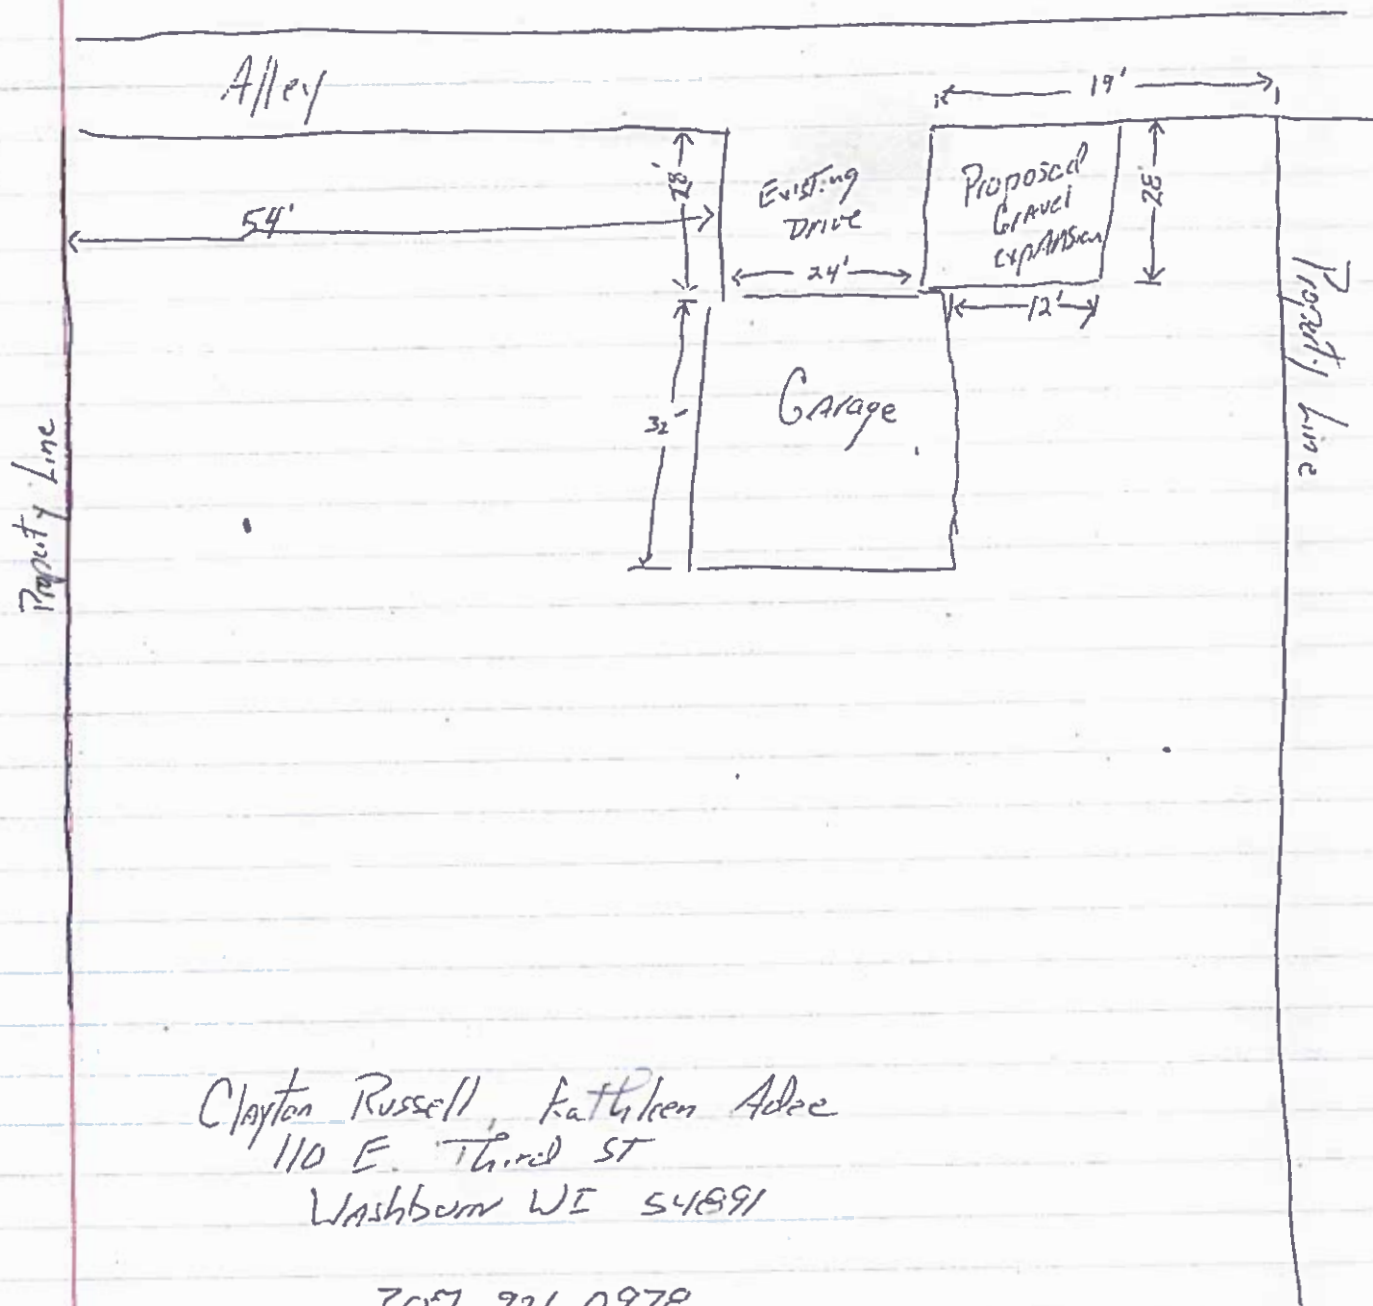 Alley
19'
54'
28'
Existing
Drive
Proposed
Gravel
expansion
28'
24'
12'
32'
Garage
Property Line
Property Line
Clayton Russell, Kathleen Adee
110 E. Third ST
Washburn WI 54891